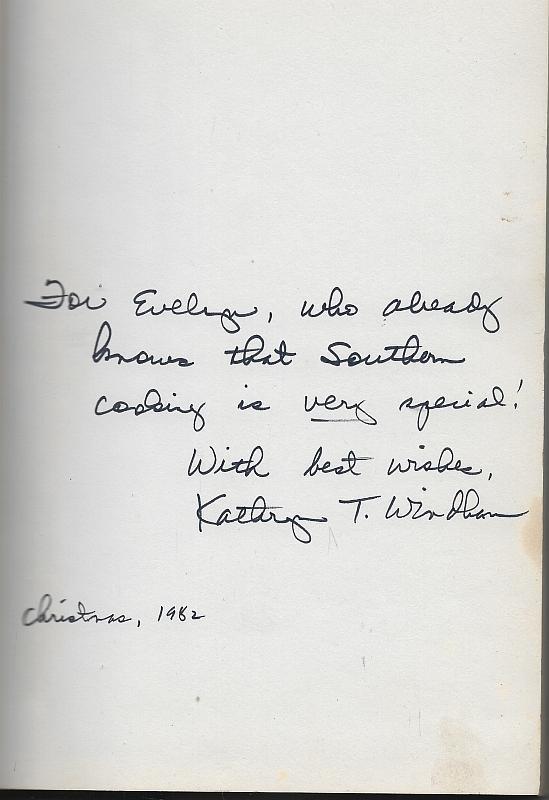 For Evelyn, who already
knows that Southern
cooking is very special!
With best wishes,
Kathryn T. Windham
Christmas, 1982